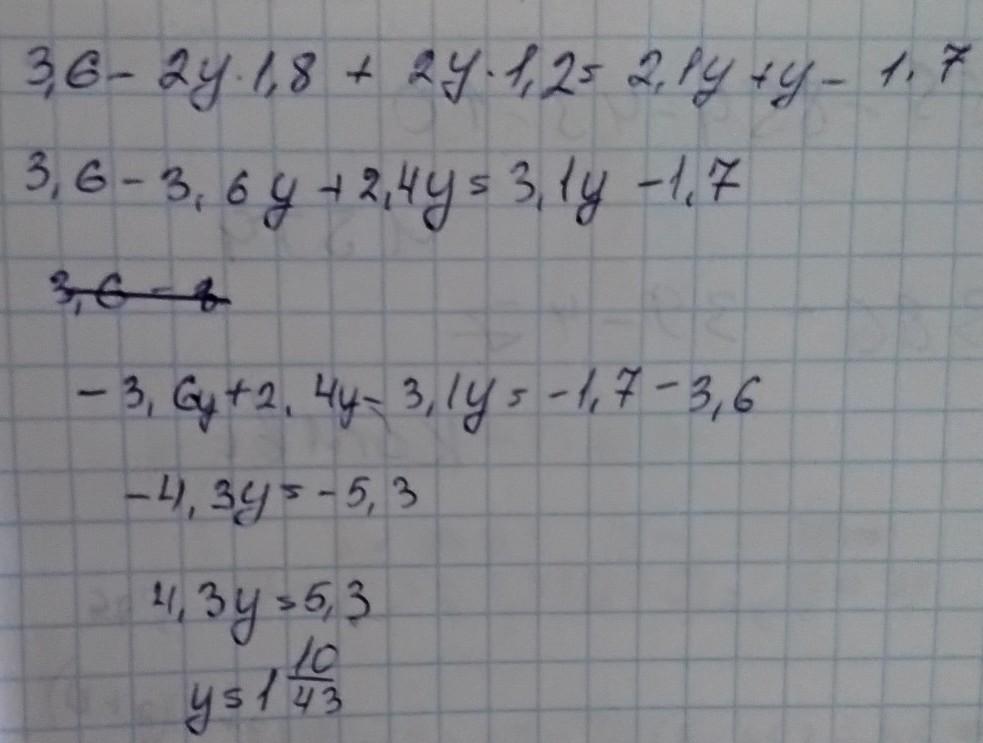 3,6 - 2y·1,8 + 2y·1,2 = 2,1y + y - 1,7
3,6 - 3,6y + 2,4y = 3,1y - 1,7
3,6 - 
-3,6y + 2,4y - 3,1y = -1,7 - 3,6
-4,3y = -5,3
4,3y = 5,3
y = 1 10/43